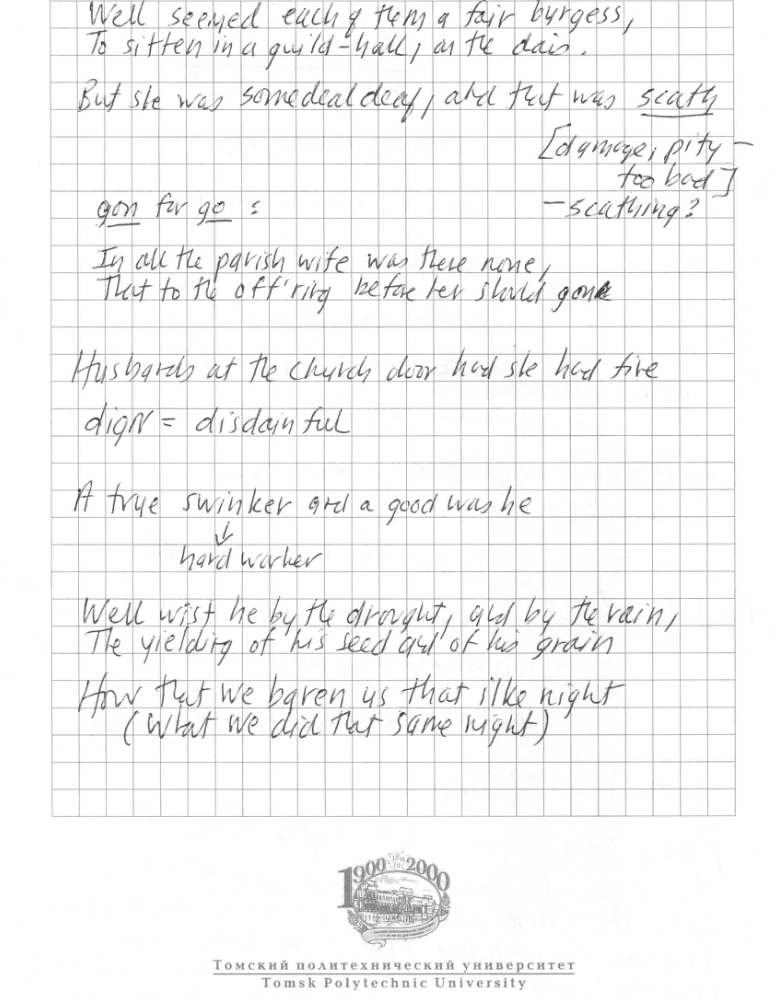 Well seemed each of them a fair burgess,
To sitten in a guild-hall, on the dais.
But she was somedeal deaf, and that was scath
[damage; pity –
too bad]
– scathing?
gon for go :
In all the parish wife was there none,
That to the off'ring before her should gon
Husbands at the church door had she had five
dign = disdainful
A true swinker and a good was he
↓
hard worker
Well wist he by the drought, and by the rain,
The yielding of his seed and of his grain
How that we baren us that ilke night
(What we did that same night)
1900 2000
Томский политехнический университет
Tomsk Polytechnic University